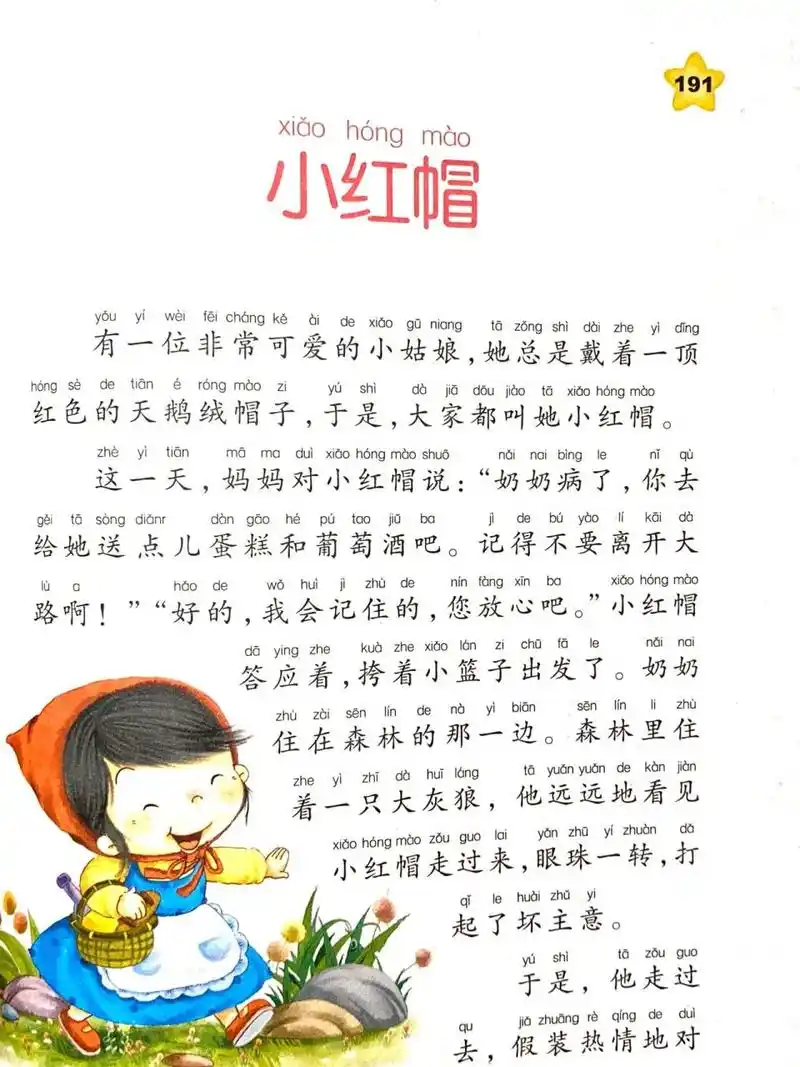 191
xiǎo hóng mào
小红帽
yǒu yí wèi fēi cháng kě ài de xiǎo gū niang tā zǒng shì dài zhe yì dǐng
有一位非常可爱的小姑娘，她总是戴着一顶
hóng sè de tiān é róng mào zi yú shì dà jiā dōu jiào tā xiǎo hóng mào
红色的天鹅绒帽子，于是，大家都叫她小红帽。
zhè yì tiān mā ma duì xiǎo hóng mào shuō nǎi nai bìng le nǐ qù
这一天，妈妈对小红帽说：“奶奶病了，你去
gěi tā sòng diǎnr dàn gāo hé pú tao jiǔ ba jì de bú yào lí kāi dà
给她送点儿蛋糕和葡萄酒吧。记得不要离开大
lù a hǎo de wǒ huì jì zhù de nín fàng xīn ba xiǎo hóng mào
路啊！”“好的，我会记住的，您放心吧。”小红帽
dā ying zhe kuà zhe xiǎo lán zi chū fā le nǎi nai
答应着，挎着小篮子出发了。奶奶
zhù zài sēn lín de nà yì biān sēn lín li zhù
住在森林的那一边。森林里住
zhe yì zhī dà huī láng tā yuǎn yuǎn de kàn jiàn
着一只大灰狼，他远远地看见
xiǎo hóng mào zǒu guo lai yǎn zhū yí zhuàn dǎ
小红帽走过来，眼珠一转，打
qǐ le huài zhǔ yi
起了坏主意。
yú shì tā zǒu guo
于是，他走过
qu jiǎ zhuāng rè qíng de duì
去，假装热情地对